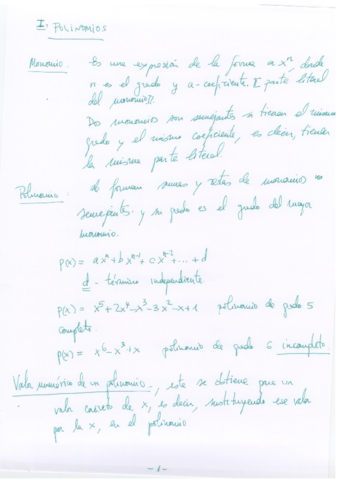 I. POLINOMIOS
Monomio. Es una expresión de la forma a xⁿ, donde
n es el grado y a - coeficiente. [parte literal
del monomio].
Dos monomios son semejantes si tienen el mismo
grado y el mismo coeficiente, es decir, tienen
la misma parte literal.
Polinomio. lo forman sumas y restas de monomios no
semejantes. y su grado es el grado del mayor
monomio.
P(x) = axⁿ + bxⁿ⁻¹ + cxⁿ⁻² + ... + d
d - término independiente
P(x) = x⁵ + 2x⁴ - x³ - 3x² - x + 1 polinomio de grado 5
completo
P(x) = x⁶ - x³ + x polinomio de grado 6 incompleto
Valor numérico de un polinomio, este se obtiene para un
valor concreto de x, es decir, sustituyendo ese valor
por la x, en el polinomio
- 1 -